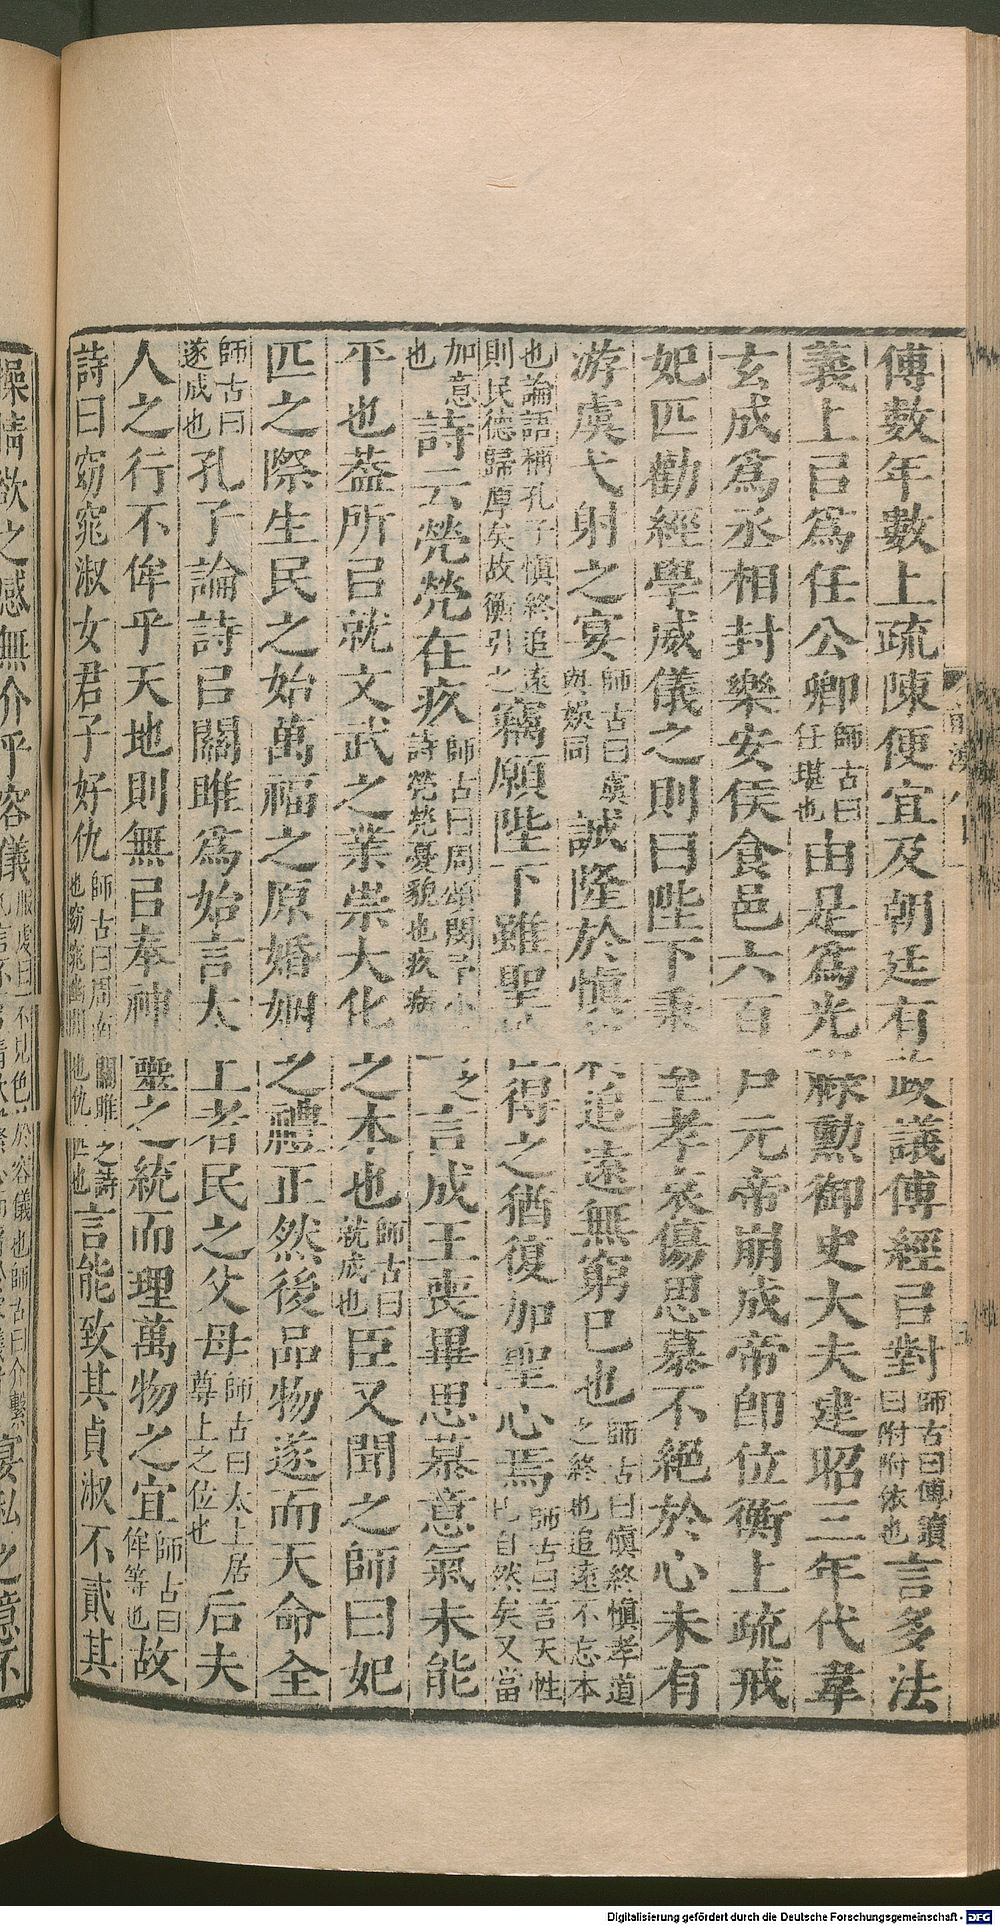 傅數年數上疏陳便宜及朝廷有政議傅經㠯對師古曰傅讀曰附附依也言多法
義上㠯爲任公卿師古曰任堪也由是爲光祿勲御史大夫建昭三年代韋
玄成爲丞相封樂安侯食邑六百戸元帝崩成帝卽位衡上疏戒
妃匹勸經學威儀之則曰陛下秉至孝哀傷思慕不絕於心未有
游虞弋射之宴師古曰虞與娛同誠隆於慎終追遠無窮已也師古曰慎終慎孝道之終也追遠不忘本
也論語稱孔子慎終追遠則民德歸厚矣故衡引之竊願陛下雖聖性得之猶復加聖心焉師古曰言天性已自然矣又當
加意也詩云煢煢在疚師古曰周頌閔予小子之詩煢煢憂貌也疚病也言成王喪畢思慕意氣未能
平也蓋所㠯就文武之業崇大化之本也師古曰就成也臣又聞之師曰妃
匹之際生民之始萬福之原婚姻之禮正然後品物遂而天命全
師古曰遂成也孔子論詩㠯關雎爲始言太上者民之父母師古曰太上居尊上之位也后夫
人之行不侔乎天地則無㠯奉神靈之統而理萬物之宜師古曰侔等也故
詩曰窈窕淑女君子好仇師古曰周南關雎之詩也窈窕幽閒也仇匹也言能致其貞淑不貳其
操情欲之感無介乎容儀服虔曰不見色於容儀也師古曰介繫宴私之意不
Digitalisierung gefördert durch die Deutsche Forschungsgemeinschaft - DFG